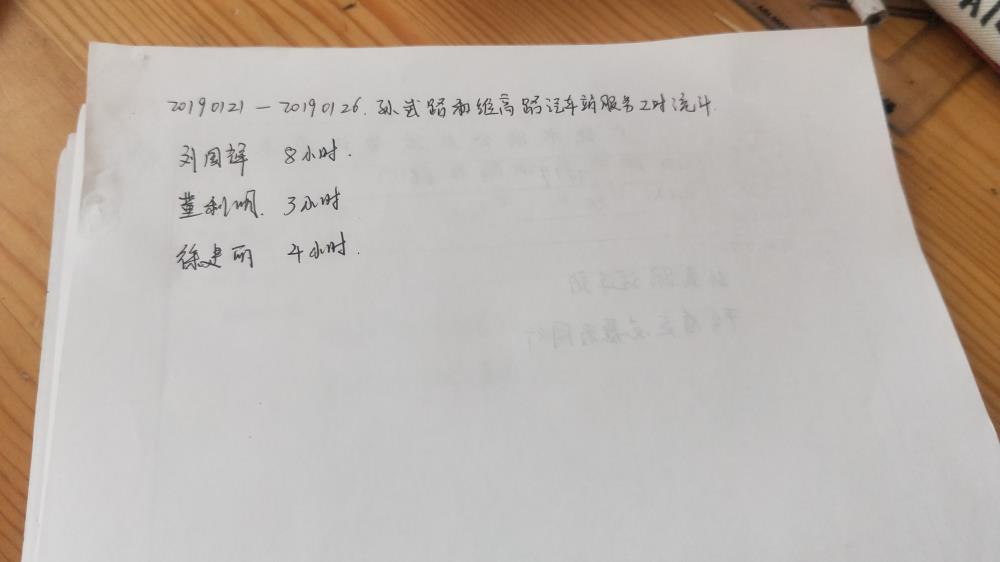 20190121 — 20190126. 孙武路和维高路汽车站服务工时统计
刘国辉 8小时.
董利明. 3小时
徐建丽 4小时.